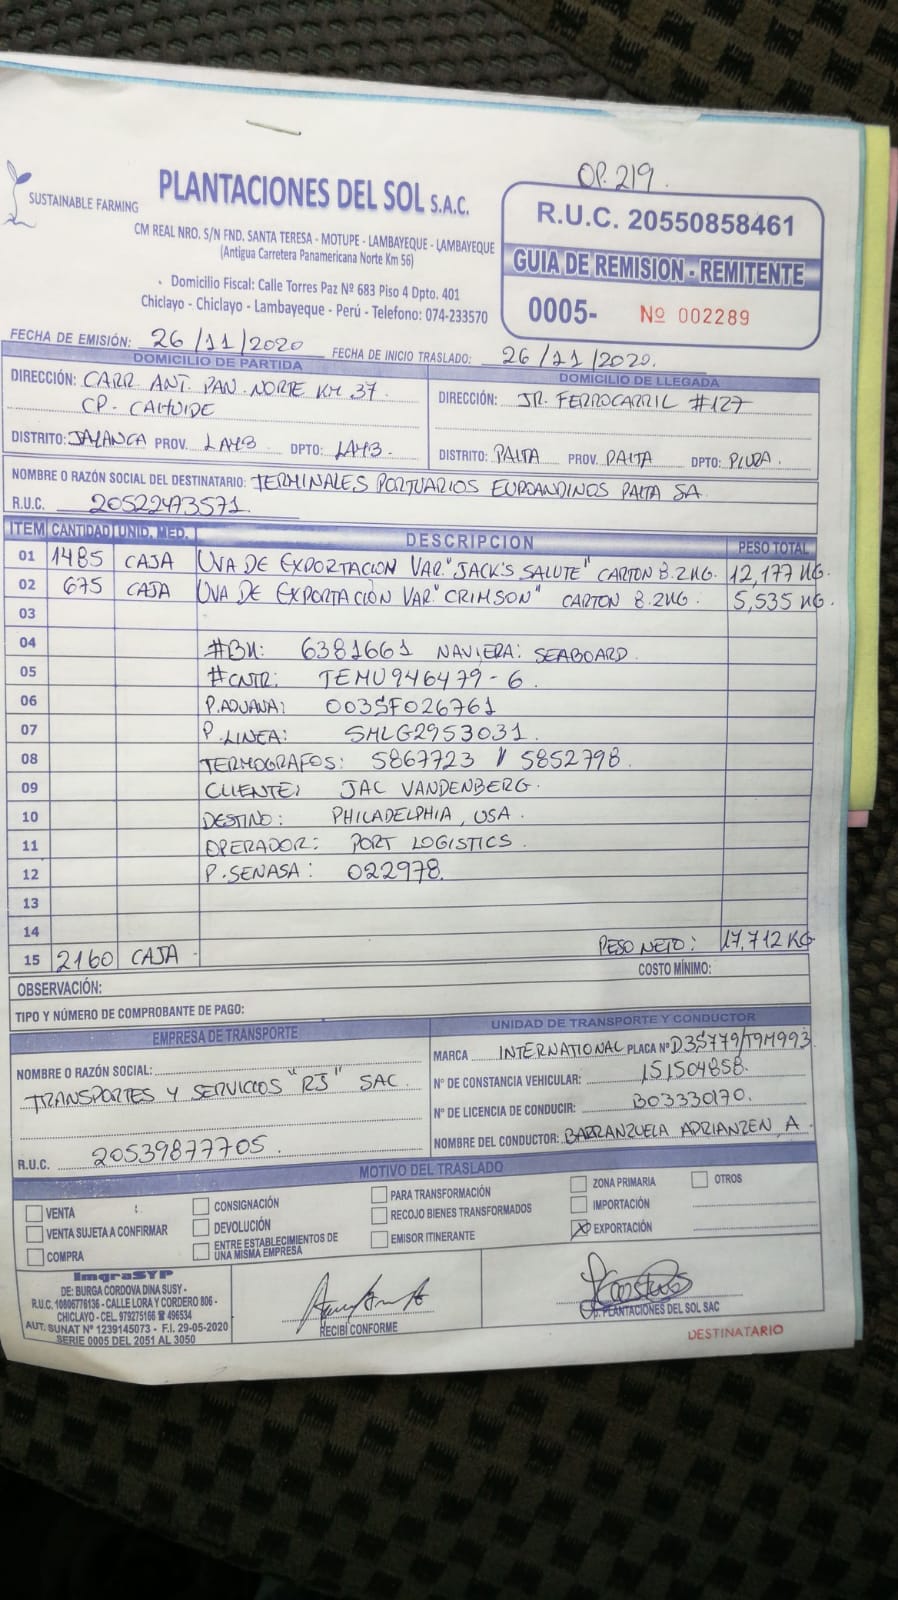 OP. 219.
SUSTAINABLE FARMING
PLANTACIONES DEL SOL S.A.C.
CM REAL NRO. S/N FND. SANTA TERESA - MOTUPE - LAMBAYEQUE - LAMBAYEQUE
(Antigua Carretera Panamericana Norte Km 56)
Domicilio Fiscal: Calle Torres Paz Nº 683 Piso 4 Dpto. 401
Chiclayo - Chiclayo - Lambayeque - Perú - Telefono: 074-233570
R.U.C. 20550858461
GUIA DE REMISION - REMITENTE
0005- Nº 002289
FECHA DE EMISIÓN: 26/11/2020 FECHA DE INICIO TRASLADO: 26/11/2020.
DOMICILIO DE PARTIDA
DIRECCIÓN: CARR. ANT. PAN. NORTE KM 37
CP. CAHUIDE
DISTRITO: JAYANCA PROV. LAMB. DPTO: LAMB.
DOMICILIO DE LLEGADA
DIRECCIÓN: JR. FERROCARRIL #127
DISTRITO: PAITA PROV. PAITA DPTO: PIURA.
NOMBRE O RAZÓN SOCIAL DEL DESTINATARIO: TERMINALES PORTUARIOS EUROANDINOS PAITA SA.
R.U.C. 20522473571.
ITEM CANTIDAD UNID. MED. DESCRIPCION PESO TOTAL
01 1485 CAJA UVA DE EXPORTACION VAR. "JACK'S SALUTE" CARTON 8.2KG. 12,177 KG.
02 675 CAJA UVA DE EXPORTACIÓN VAR "CRIMSON" CARTON 8.2KG. 5,535 KG.
03
04 #BK: 6381661 NAVIERA: SEABOARD.
05 #CNTR: TEMU946479-6.
06 P.ADUANA: 003SF026761
07 P.LINEA: SMLG2953031.
08 TERMOGRAFOS: 5867723 / 5852798.
09 CLIENTE: JAC VANDENBERG.
10 DESTINO: PHILADELPHIA, USA.
11 OPERADOR: PORT LOGISTICS.
12 P. SENASA: 022978.
13
14
15 2160 CAJA PESO NETO: 17,712 KG
COSTO MÍNIMO:
OBSERVACIÓN:
TIPO Y NÚMERO DE COMPROBANTE DE PAGO:
EMPRESA DE TRANSPORTE
NOMBRE O RAZÓN SOCIAL:
TRANSPORTES Y SERVICIOS "RJ" SAC.
R.U.C. 20539877705.
UNIDAD DE TRANSPORTE Y CONDUCTOR
MARCA INTERNATIONAL PLACA Nº D3S779/T9M993
Nº DE CONSTANCIA VEHICULAR: 151504858.
Nº DE LICENCIA DE CONDUCIR: B03330170.
NOMBRE DEL CONDUCTOR: BARRANZUELA ADRIANZEN, A
MOTIVO DEL TRASLADO
VENTA
VENTA SUJETA A CONFIRMAR
COMPRA
CONSIGNACIÓN
DEVOLUCIÓN
ENTRE ESTABLECIMIENTOS DE
UNA MISMA EMPRESA
PARA TRANSFORMACIÓN
RECOJO BIENES TRANSFORMADOS
EMISOR ITINERANTE
ZONA PRIMARIA
IMPORTACIÓN
EXPORTACIÓN
OTROS
ImgraSYP
DE: BURGA CORDOVA DINA SUSY -
R.U.C. 10806776136 - CALLE LORA Y CORDERO 806 -
CHICLAYO - CEL. 979275166 ☎ 496534
AUT. SUNAT Nº 1239145073 - F.I. 29-05-2020
SERIE 0005 DEL 2051 AL 3050
RECIBÍ CONFORME
PLANTACIONES DEL SOL SAC
DESTINATARIO